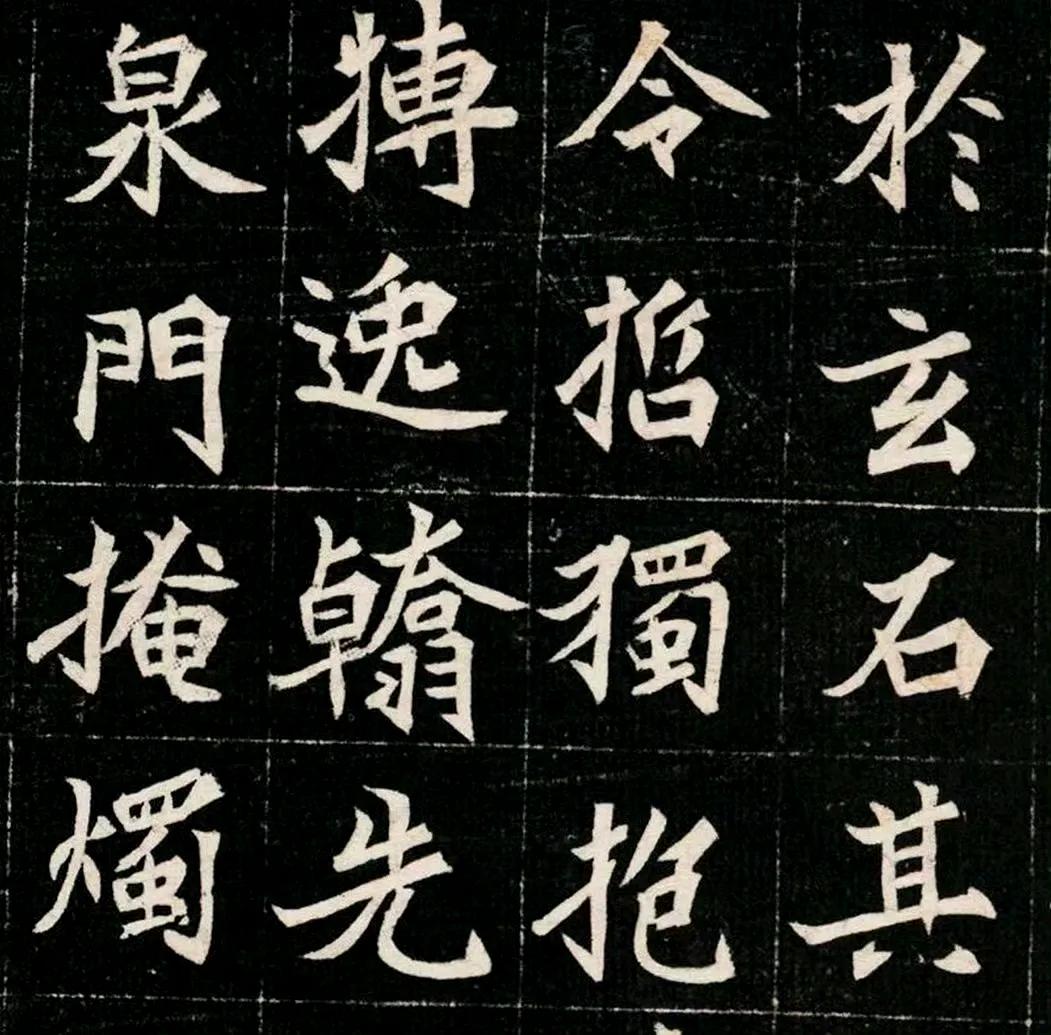 於玄石其
令哲獨抱
搏逸翰先
泉門掩燭